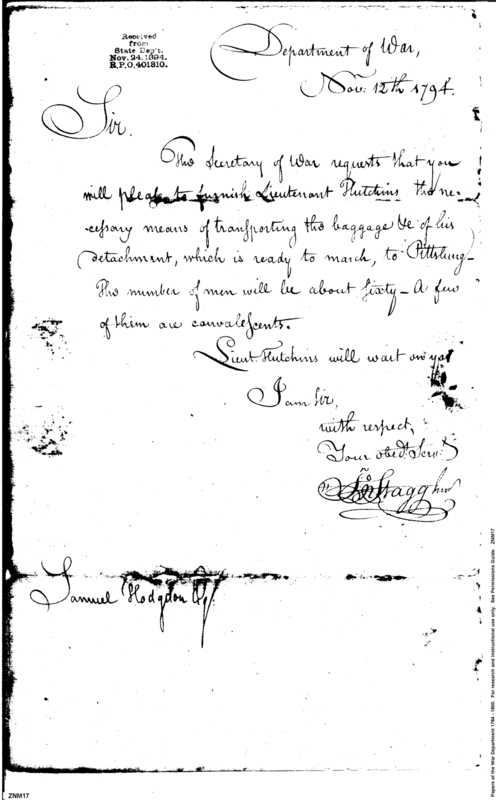 Received
from
State Dep't.
Nov. 24. 1894.
R.P.O. 401310.
Department of War,
Nov: 12th 1794.
Sir.
The Secretary of War requests that you
will please to furnish Lieutenant Hutchins the ne-
cessary means of transporting the baggage &c of his
detachment, which is ready to march, to Pittsburg—
The number of men will be about sixty— A few
of them are convalescents.
Lieut Hutchins will wait on you
I am Sir,
with respect,
Your obed. Serv.
Jno Stagg Junr
Samuel Hodgdon Esq.
ZNM17
Papers of the War Department 1784 - 1800. For research and instructional use only. See Permissions Guide. ZNM17